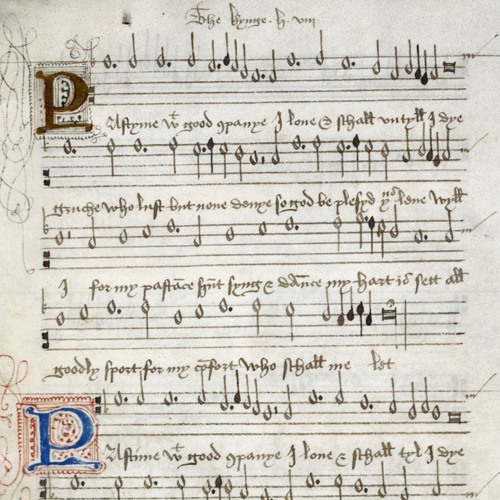 The kynge . h . viii
PAstyme wt good 9panye I loue & schall vntyll I dye
gruche who lust but none denye so god be plesyd þus leue wyll
I for my pastāce hūt syng & dāce my hart is sett all
goodly sport for my cōfort who schall me let
PAstime wt good 9panye I loue & schall tyl I dye